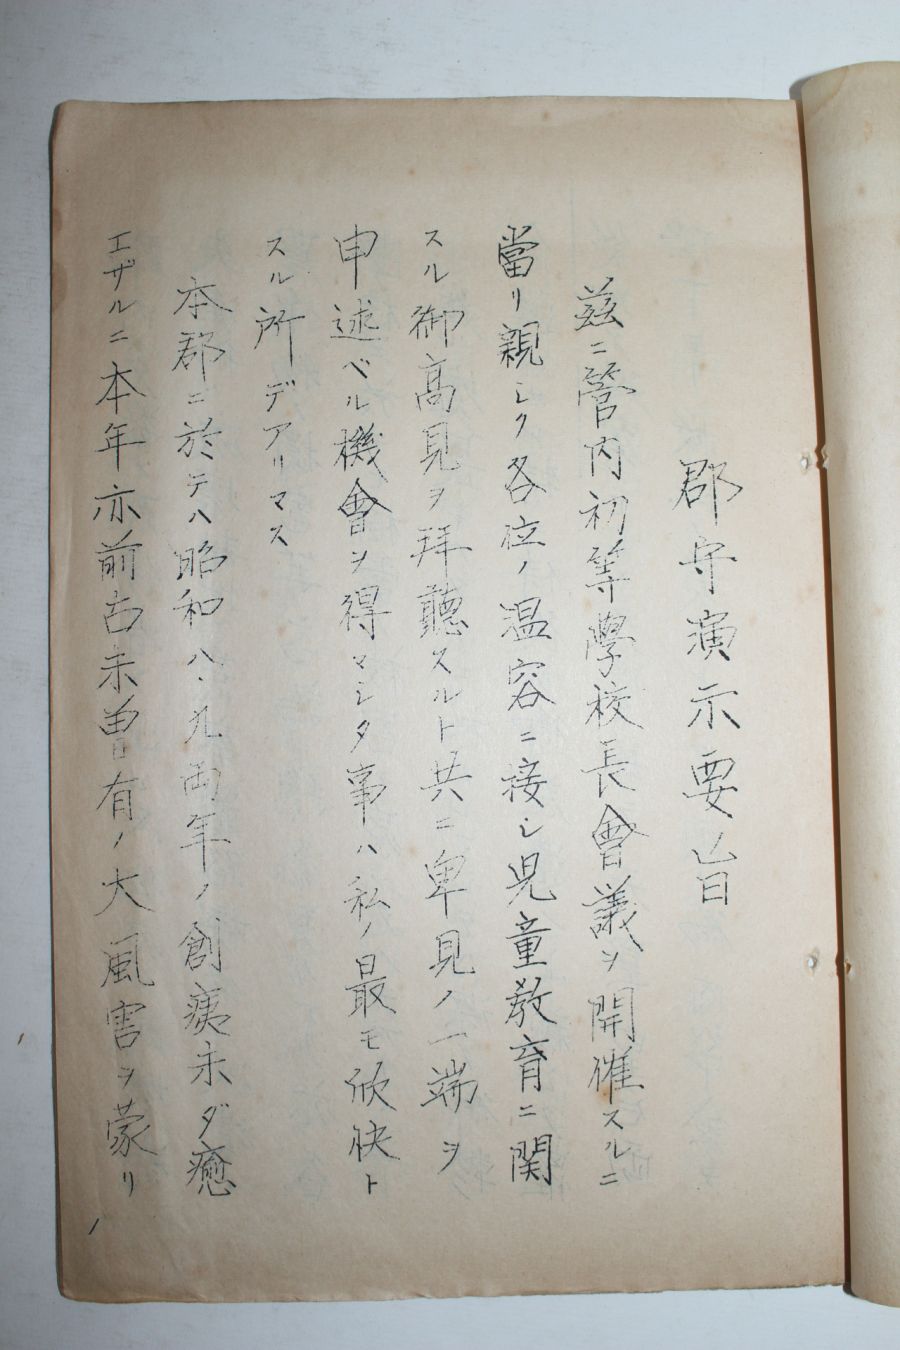 郡守演示要旨
茲ニ管内初等學校長會議ヲ開催スルニ
當リ親シク各位ノ温容ニ接シ児童教育ニ関
スル御高見ヲ拜聽スルト共ニ卑見ノ一端ヲ
申述ベル機會ヲ得マシタ事ハ私ノ最モ欣快ト
スル所デアリマス
本郡ニ於テハ昭和八、九両年ノ創痍未ダ癒
エザルニ本年亦前古未曽有ノ大風害ヲ蒙リ
1